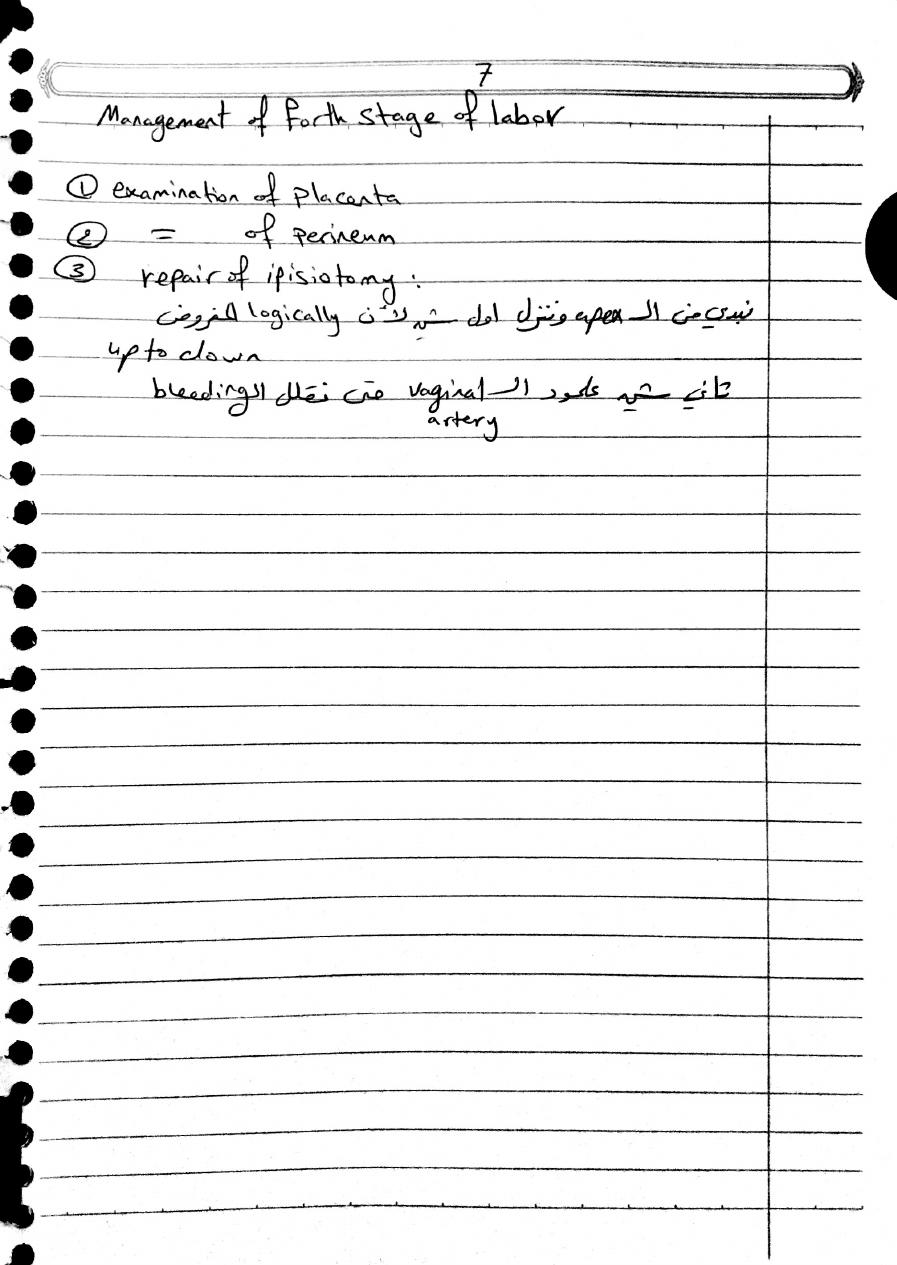 7
Management of forth stage of labor
① examination of placenta
② = of perineum
③ repair of ipisiotomy :
نبدي من الـ apex وننزل اول شي لأن logically المفروض
up to down
ثاني شي علمود الـ vaginal حتى نقلل الـ bleeding
artery